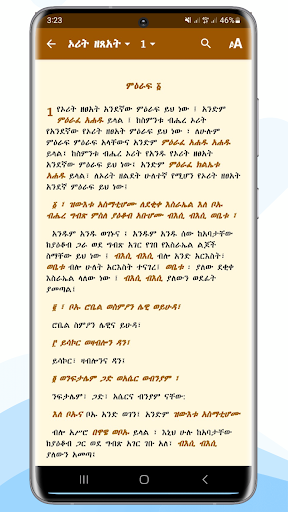 3:23
46%
ኦሪት ዘጸአት
1
AA
ምዕራፍ ፩
1 የኦሪት ዘፀአት አንደኛው ምዕራፍ ይህ ነው ፤ አንድም
ምዕራፈ አሐዱ ይላል ፤ ከስምንቱ ብሔረ ኦሪት
የአንደኛው የኦሪት ዘፀአት አንደኛው ምዕራፍ ይህ ነው ፡ ለሁሉም
ምዕራፍ ምዕራፍ አላቸውና አንድም ምዕራፈ አሐዱ አሐዱ
ይላል፤ ከስምንቱ ብሔረ ኦሪት የአንዱ የኦሪት ዘፀአት
አንደኛው ምዕራፍ ይህ ነው ፤ አንድም ምዕራፈ ክልኤቱ
አሐዱ ይላል፤ ለኦሪት ዘልደት ሁለተኛ የሚሆን የኦሪት ዘፀአት
አንደኛ ምዕራፍ ይህ ነው፤
፩ ፤ ዝውእቱ አስማቲሆሙ ለደቂቀ እስራኤል እለ ቦኡ
ብሔረ ግብጽ ምስለ ያዕቆብ አቡሆሙ ብእሲ ብእሲ ወቤቱ ፡
አንዱም አንዱ ወገኑና ፤ አንዱም አንዱ ሰው ከአባታቸው
ከያዕቆብ ጋራ ወደ ግብጽ አገር የገቡ የእስራኤል ልጆች
ስማቸው ይህ ነው ፤ ብእሲ ብእሲ ብሎ አንድ አርእስት፤
ወቤቱ ብሎ ሁለት አርእስት ተናገረ፤ ወቤቱ ፡ ያለው ደቂቀ
እስራኤል ላለው ነው ፤ ብእሲ ብእሲ ያለውን ወደፊት
ያመጣል፤
፪ ፤ ቦኡ ሮቤል ወስምዖን ሌዊ ወይሁዳ፤
ሮቤል ስምዖን ሌዊና ይሁዳ፤
፫ ይሳኮር ወዛብሎን ዳን፤
ይሳኮር፤ ዛብሎንና ዳን፤
፬ ወንፍታሌም ጋድ ወአሴር ወብንያም ፤
ንፍታሌም፤ ጋድ፤ አሴርና ብንያም ናቸው፡
እለ ቦኡና ቦኡ አንድ ወገን፤ አንድም ዝውእቱ አስማቲሆሙ
ብሎ አሥሮ በዋዌ ወቦኡ ይላል ፤ እኒህ ሁሉ ከአባታቸው
ከያዕቆብ ጋር ወደ ግብጽ አገር ገቡ አለ፤ ብእሲ ብእሲ
ያለውን አመጣ፤